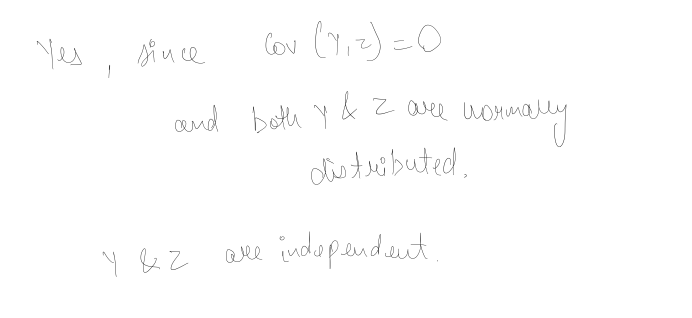 Yes, since Cov (Y, Z) = 0
and both Y & Z are normally
distributed.
Y & Z are independent.